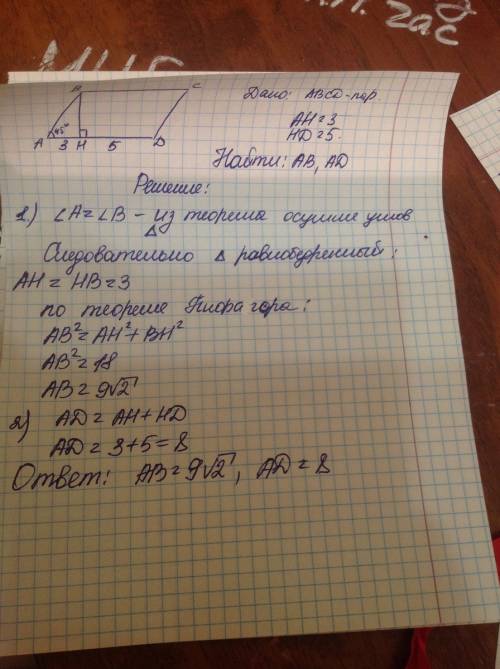 час
B C
45°
A 3 H 5 D
Дано: ABCD-пар.
AH=3
HD=5.
Найти: AB, AD
Решение:
1.) ∠A=∠B - из теорема осумме углов
△
Следовательно △ равнобедренный:
AH = HB=3
по теореме Пифагора:
AB²=AH²+BH²
AB²=18
AB=9√2
2) AD=AH+HD
AD=3+5=8
Ответ: AB=9√2, AD=8